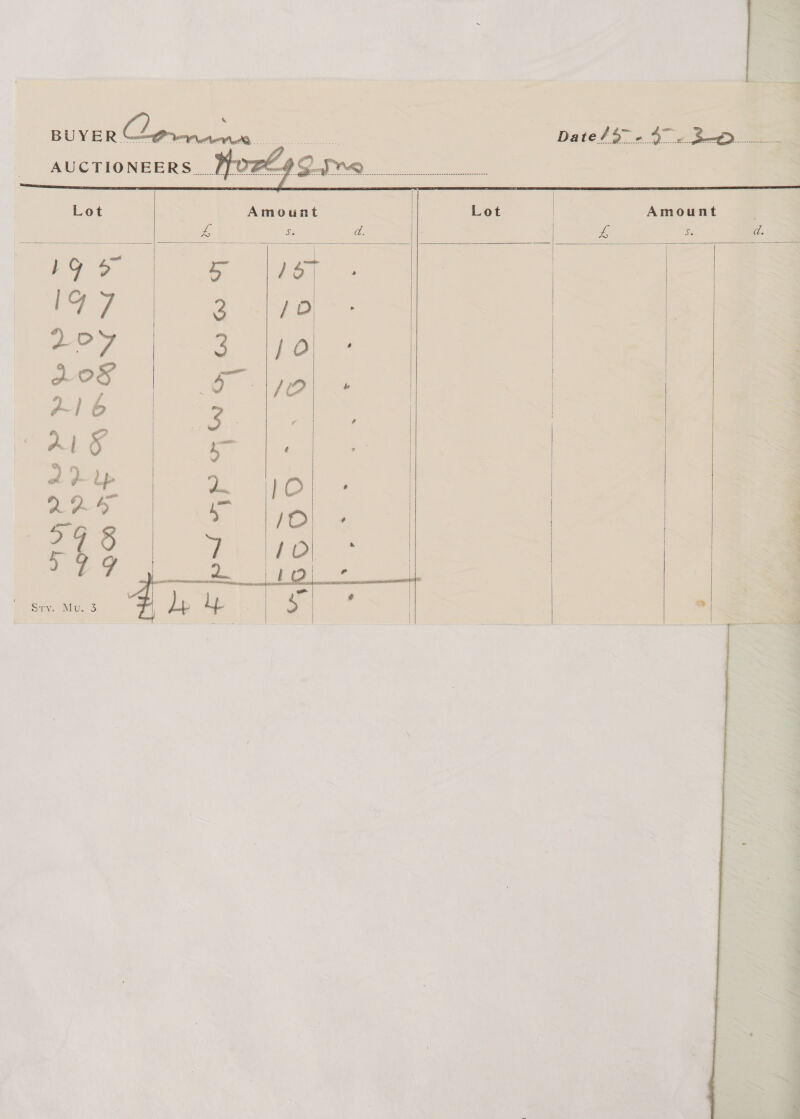 BUYER Comins
Date 15-5-30
AUCTIONEERS
Lot Amount Lot Amount
£ s. d. £ s. d.
195 5 15 .
197 3 10 .
207 3 10 .
208 5 10 .
216 3 . .
218 5 . .
224 2 10 .
225 5 10 .
598 7 10 .
599 2 10 .
Srv. Mu. 3 £ 44 5 .